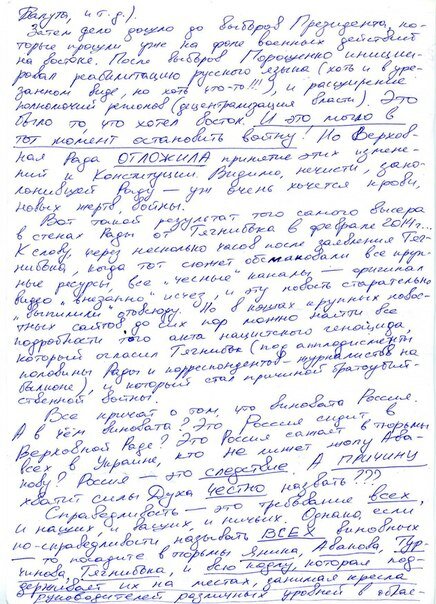 Балута, и т.д.).
Затем дело дошло до выборов Президента, ко-
торые прошли уже на фоне военных действий
на востоке. После выборов Порошенко иниции-
ровал реабилитацию русского языка (хоть и в уре-
занном виде, но хоть что-то!!!), и расширение
полномочий регионов (децентрализация власти). Это
было то что хотел восток. И это могло в
тот момент остановить войну! Но Верхов-
ная Рада ОТЛОЖИЛА принятие этих измене-
ний к Конституции. Видимо, нечисти, запо-
лонившей Раду — уж очень хочется крови,
новых жертв, войны.
Вот такой результат того самого высера
в стенах Рады от Тягнибока в феврале 2014г...
К слову, через несколько часов после заявления Тяг-
нибока, когда тот сюжет обсмаковали все круп-
ные ресурсы, все "чесные" каналы — оригинал
видео "внезапно" исчез, и эту новость старательно
"выпилили" отовсюду. Но в кэшах крупных новос-
тных сайтов до сих пор можно найти все
подробности того акта нацистского геноцида,
который огласил Тягнибок (под апплодисменты
половины Рады и корреспондентов-журналистов на
балконе), и который стал причиной братоубий-
ственной войны.
Все кричат о том, что виновата Россия.
А в чём виновата? Это Россия сидит в
Верховной Раде? Это Россия сажает в тюрьмы
всех в Украине, кто не лижет жопу Ава-
кову? Россия — это следствие. А ПРИЧИНУ
хватит силы Духа честно назвать???
Справедливость — это требование всех,
и наших, и ваших, и ничьих. Однако, если
по-справедливости называть ВСЕХ виновных
— то посадите в тюрьмы Яныка, Авакова, Тур-
чинова, Тягнибока, и всю кодлу, которая под-
держивает их на местах, занимая кресла
руководителей различных уровней в облас-